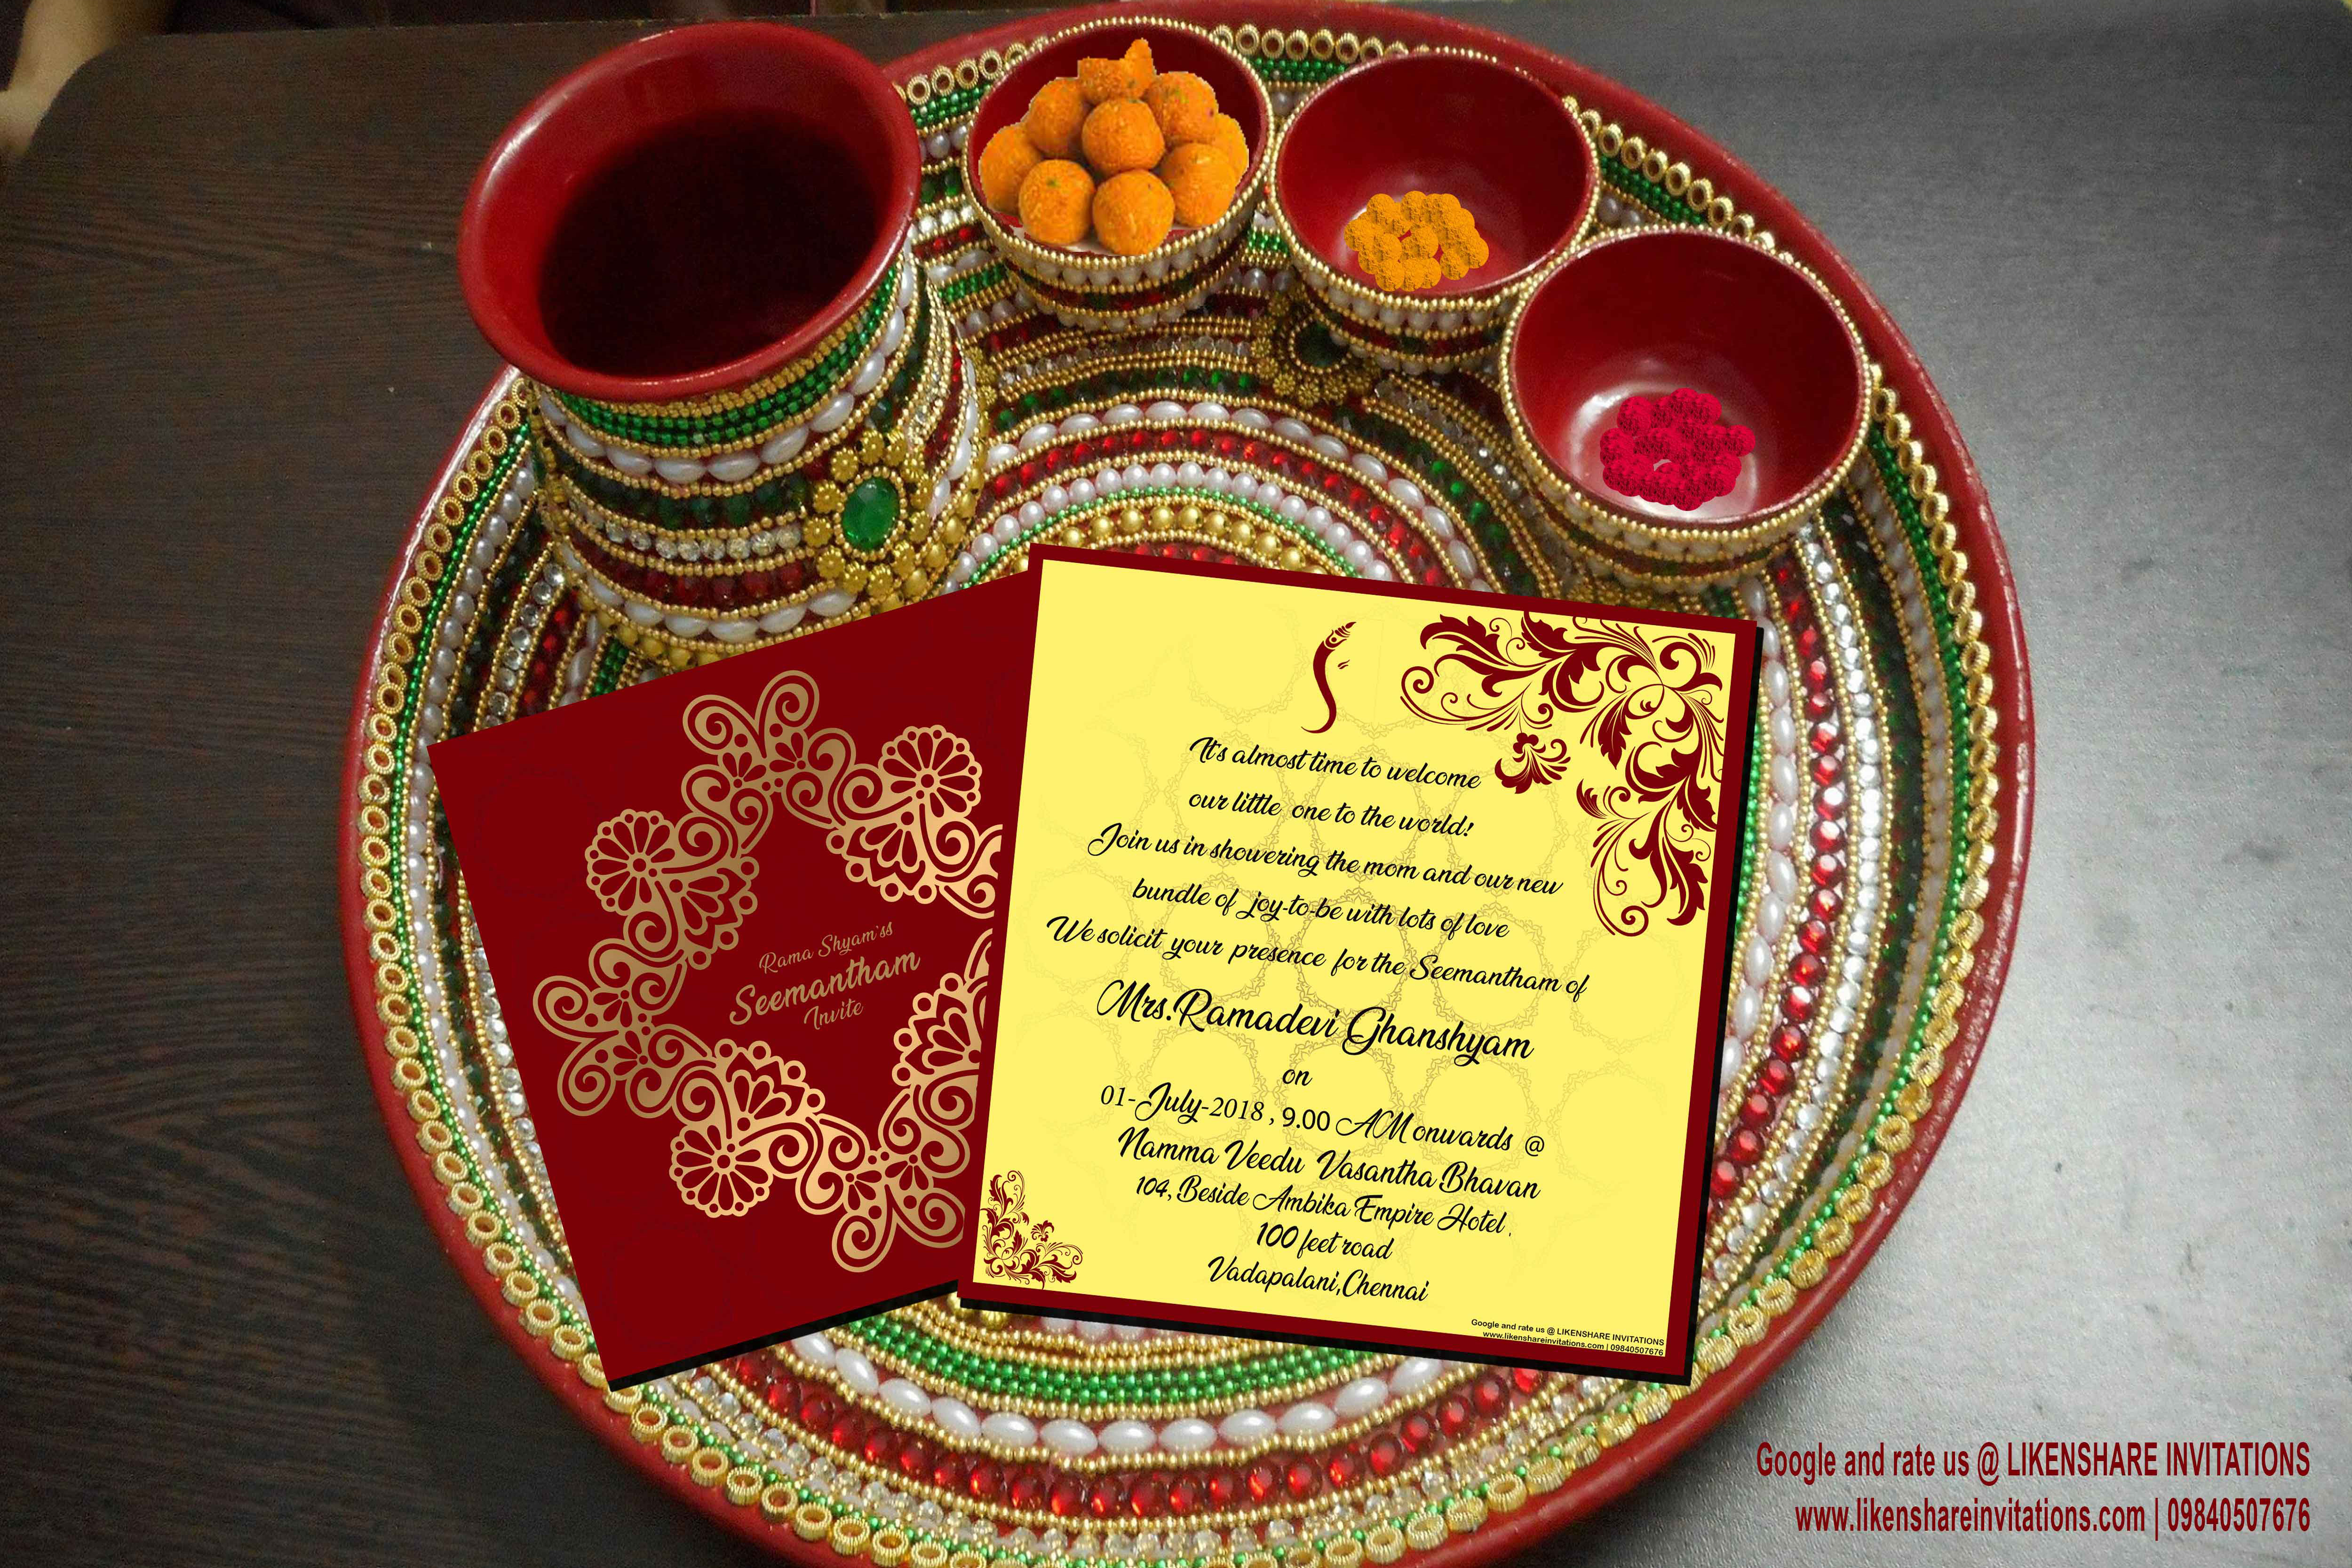 Rama Shyam'ss
Seemantham
Invite
It's almost time to welcome
our little one to the world!
Join us in showering the mom and our new
bundle of joy-to-be with lots of love
We solicit your presence for the Seemantham of
Mrs.Ramadevi Ghanshyam
on
01-July-2018 , 9.00 AM onwards @
Namma Veedu Vasantha Bhavan
104, Beside Ambika Empire Hotel .
100 feet road
Vadapalani,Chennai
Google and rate us @ LIKENSHARE INVITATIONS
www.likenshareinvitations.com | 09840507676
Google and rate us @ LIKENSHARE INVITATIONS
www.likenshareinvitations.com | 09840507676